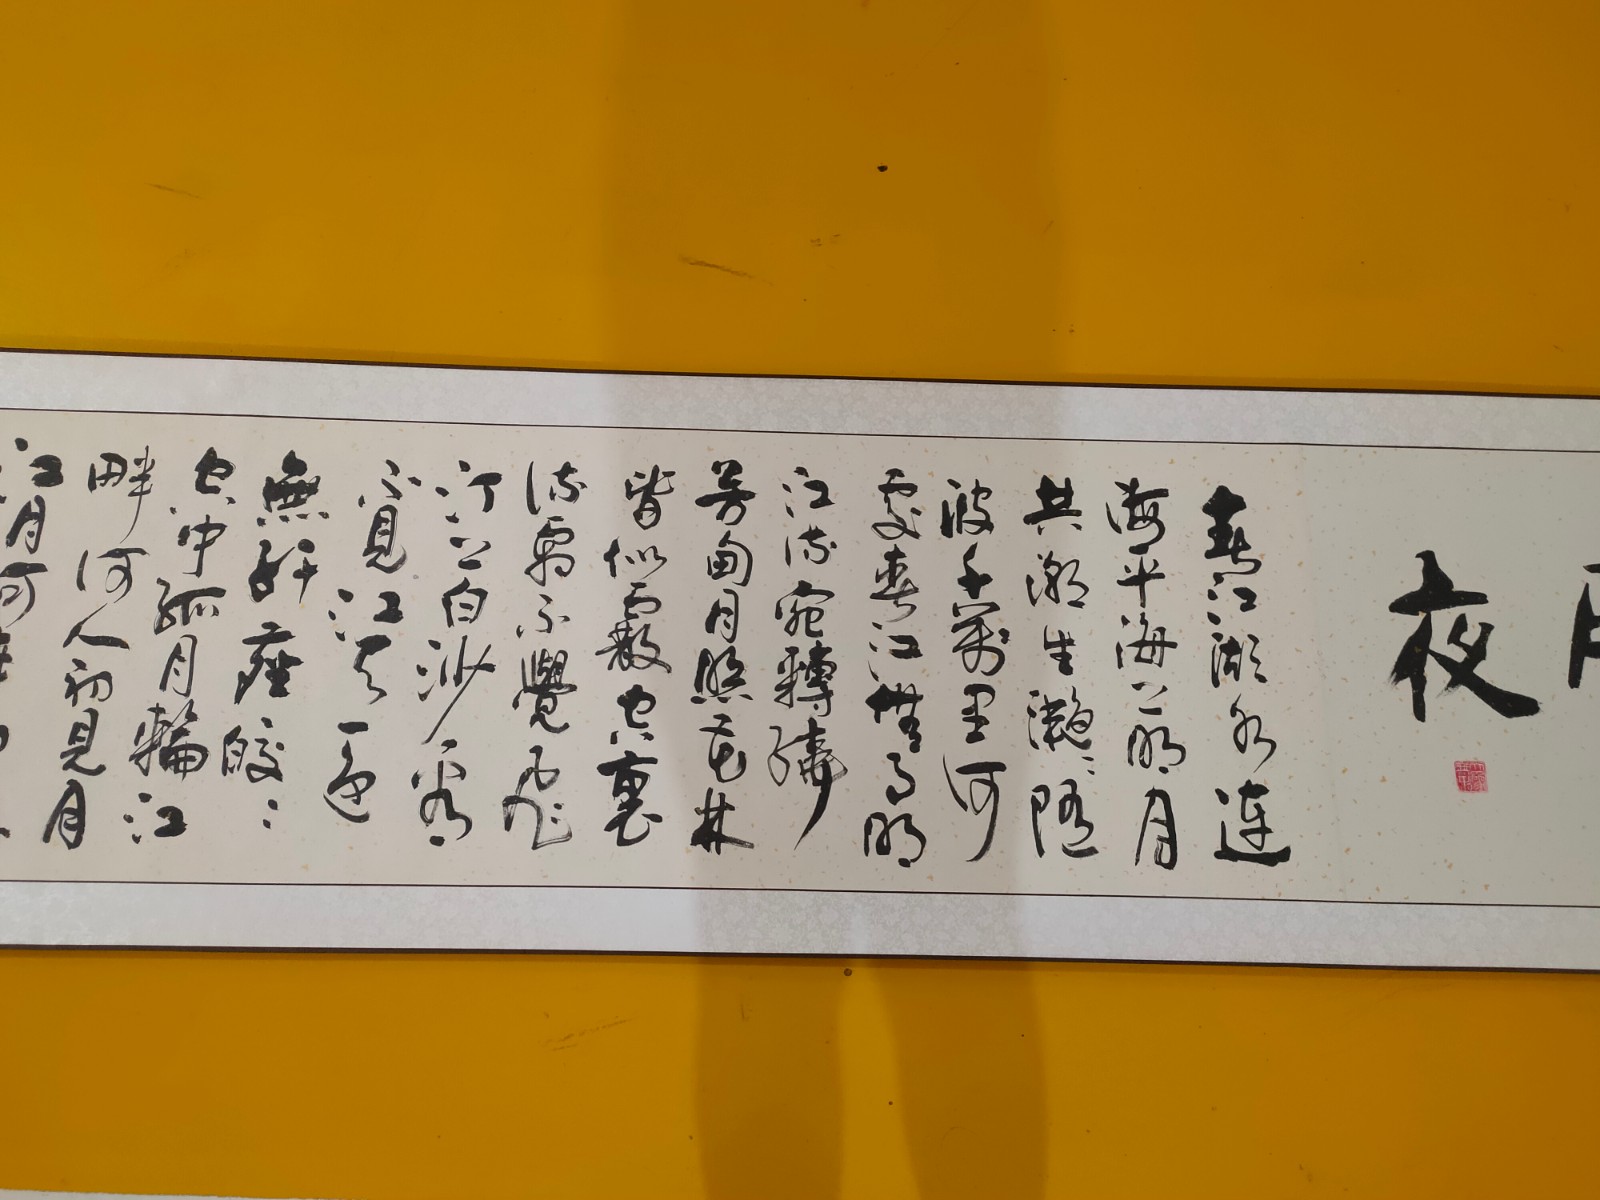 夜
春江潮水連
海平海上明月
共潮生灩灩隨
波千萬里何
處春江無月明
江流宛轉繞
芳甸月照花林
皆似霰空裏
流霜不覺飛
汀上白沙看
不見江天一色
無纤塵皎皎
空中孤月輪江
畔何人初見月
江月何年初